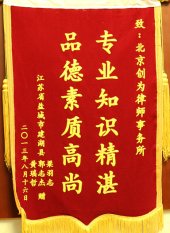 致：北京创为律师事务所
专业知识精湛
品德素质高尚
江苏省盐城市建湖县
郭志杰 赠
二〇一三年八月十六日